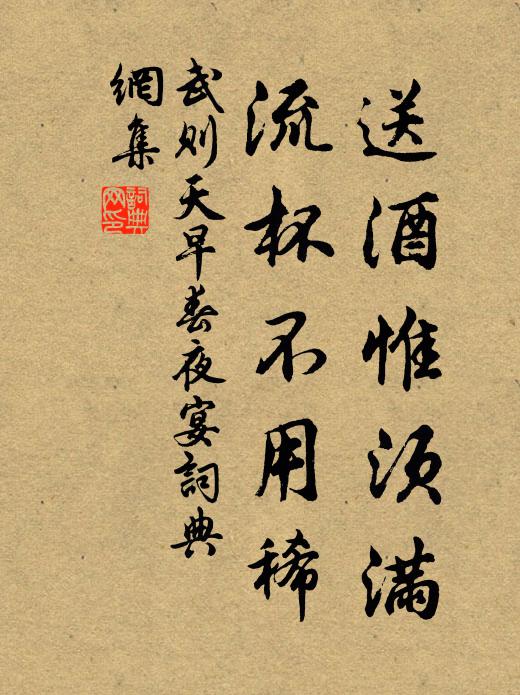 送酒惟须满
流杯不用稀
武则天早春夜宴詞典
網集
詞典網印